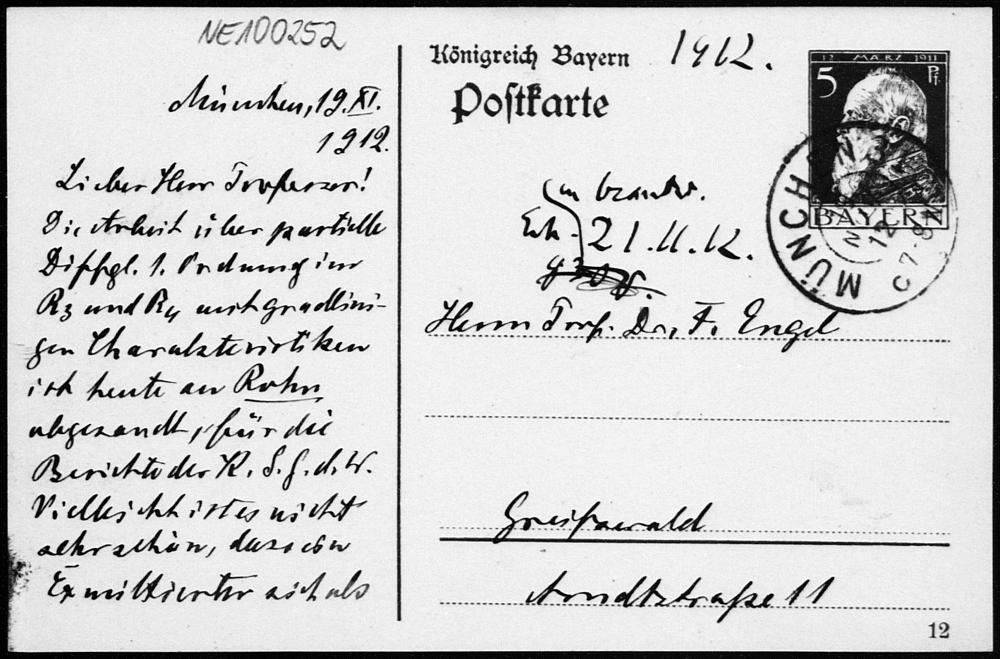 NE100252
München, 19. XI.
1912.
Lieber Herr Professor!
Die Arbeit über partielle
Diffgl. 1. Ordnung im
R3 und R4 mit gradlini-
gen Charakteristiken
ist heute an Rohn
abgesandt, für die
Berichte der K. S. G. d. W.
Vielleicht ist es nicht
sehr schön, dass ein
Exmittierter sich als
Königreich Bayern
Postkarte
1912.
12 MÄRZ 1911
5 Pf.
BAYERN
MÜNCHEN
12
7-8
beantw.
Erh. 21.11.12.
Herrn Prof. Dr. F. Engel
Greifswald
Arndtstraße 11
12